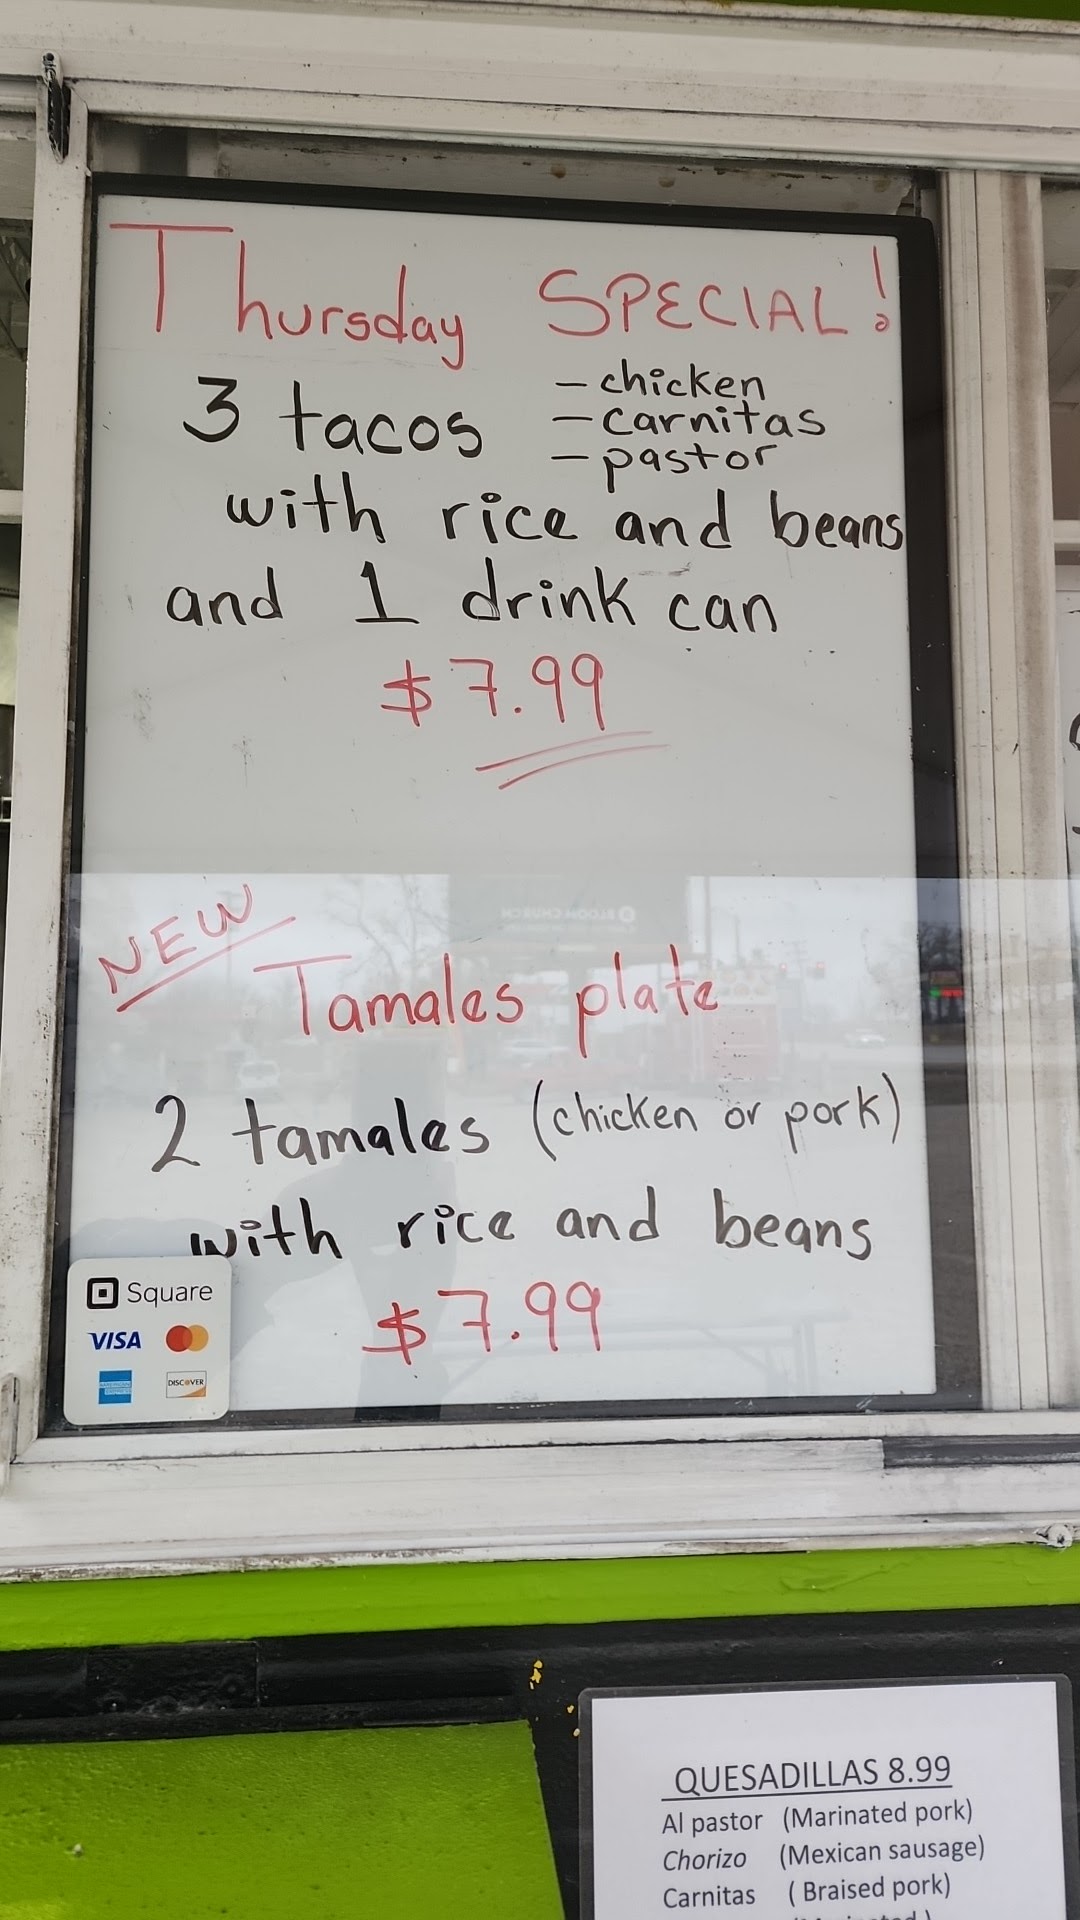 Thursday SPECIAL!
3 tacos
- chicken
- carnitas
- pastor
with rice and beans
and 1 drink can
$7.99
BLOOM CHURCH
NEW
Tamales plate
2 tamales (chicken or pork)
with rice and beans
$7.99
Square
VISA
DISCOVER
QUESADILLAS 8.99
Al pastor (Marinated pork)
Chorizo (Mexican sausage)
Carnitas ( Braised pork)